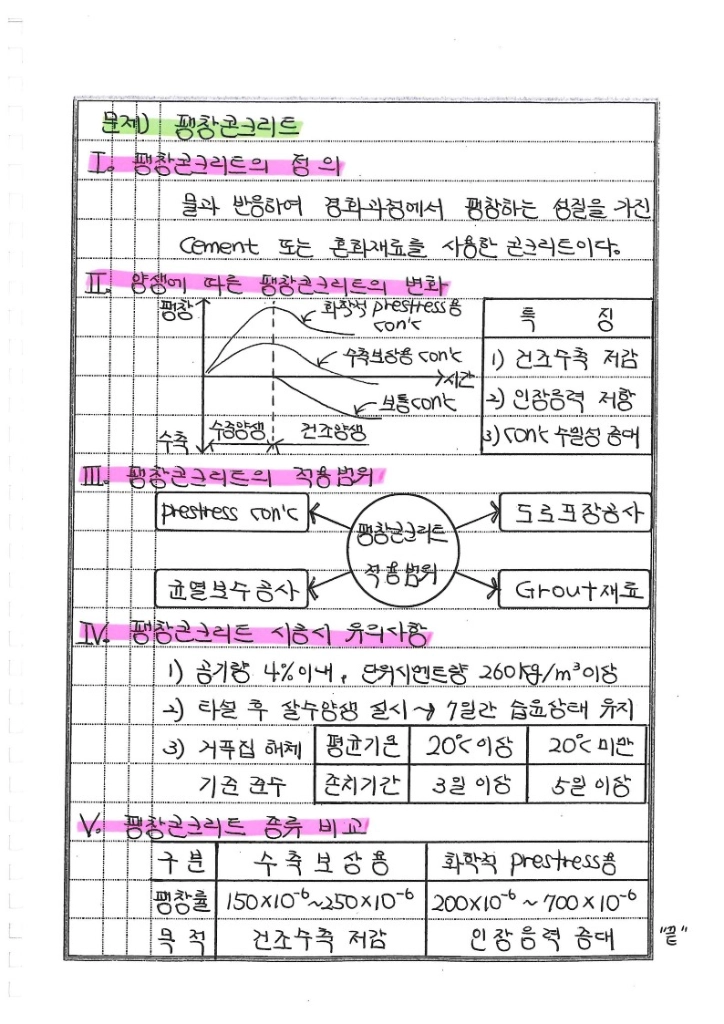 문제) 팽창콘크리트
I. 팽창콘크리트의 정의
물과 반응하여 경화과정에서 팽창하는 성질을 가진
Cement 또는 혼화재료를 사용한 콘크리트이다.
II. 양생에 따른 팽창콘크리트의 변화
팽창
화학적 prestress용 con'c
수축보상용 con'c
시간
보통 con'c
수축
수중양생
건조양생
특 징
1) 건조수축 저감
2) 인장응력 저항
3) con'c 수밀성 증대
III. 팽창콘크리트의 적용범위
prestress con'c
도로포장공사
팽창콘크리트
적용범위
균열보수공사
Grout재료
IV. 팽창콘크리트 시공시 유의사항
1) 공기량 4%이내, 단위시멘트량 260kg/m³이상
2) 타설 후 살수양생 실시 → 7일간 습윤상태 유지
3) 거푸집 해체 평균기온 20℃이상 20℃미만
기준 준수 존치기간 3일 이상 5일 이상
V. 팽창콘크리트 종류 비교
구분 수축보상용 화학적 prestress용
팽창률 150×10⁻⁶~250×10⁻⁶ 200×10⁻⁶~700×10⁻⁶
목적 건조수축 저감 인장응력 증대 "끝"